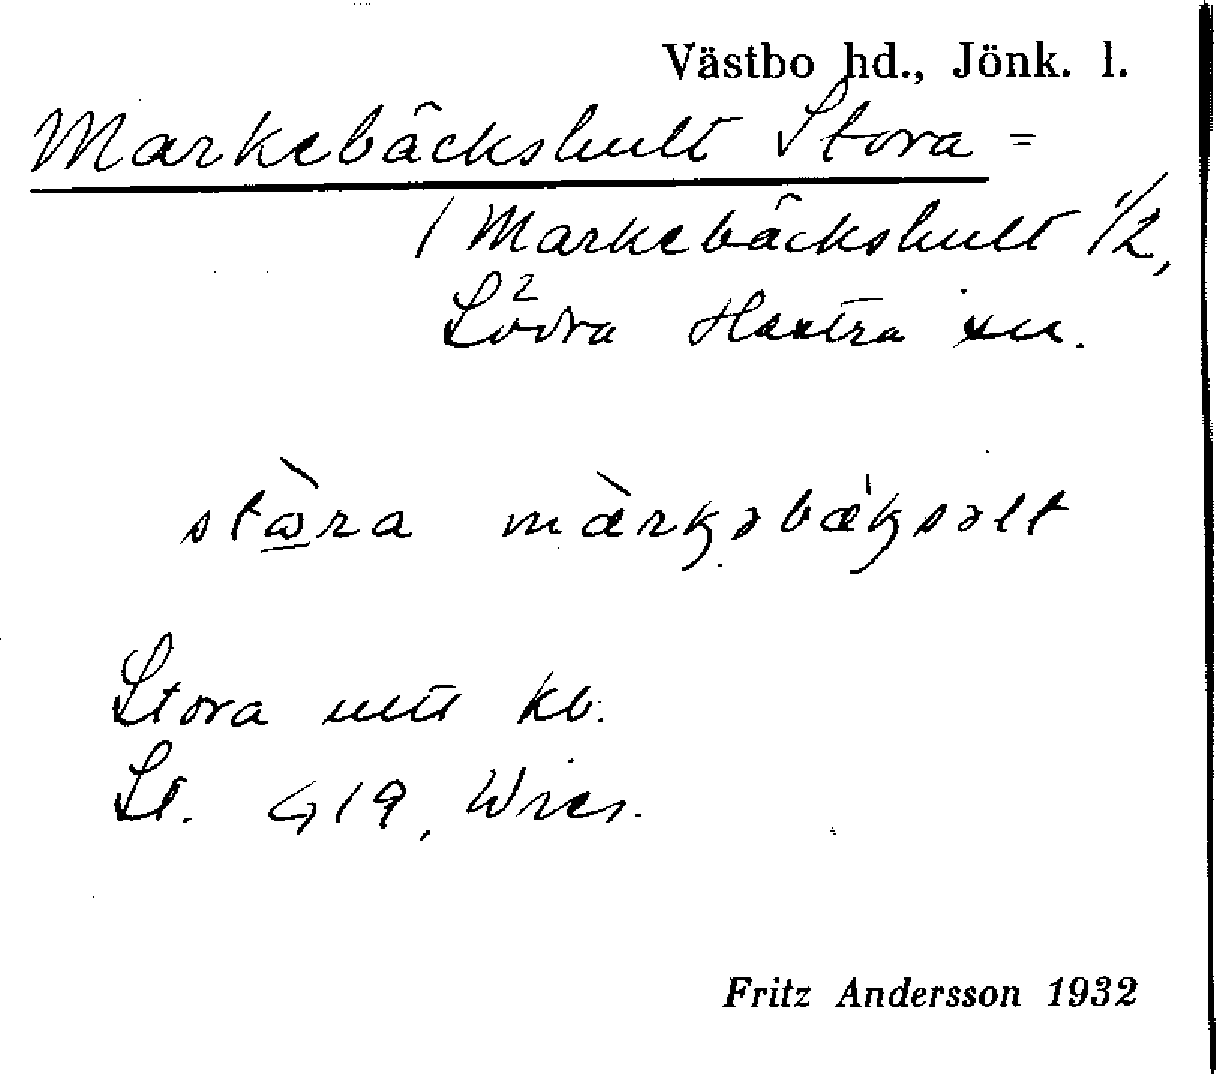 Västbo hd., Jönk. l.
Markebäckshult Stora =
1 Markebäckshult 1/2,
Södra Hestra sn.
stωra màrkəbæksəlt
Stora utu kb.
St. G19, Wies.
Fritz Andersson 1932